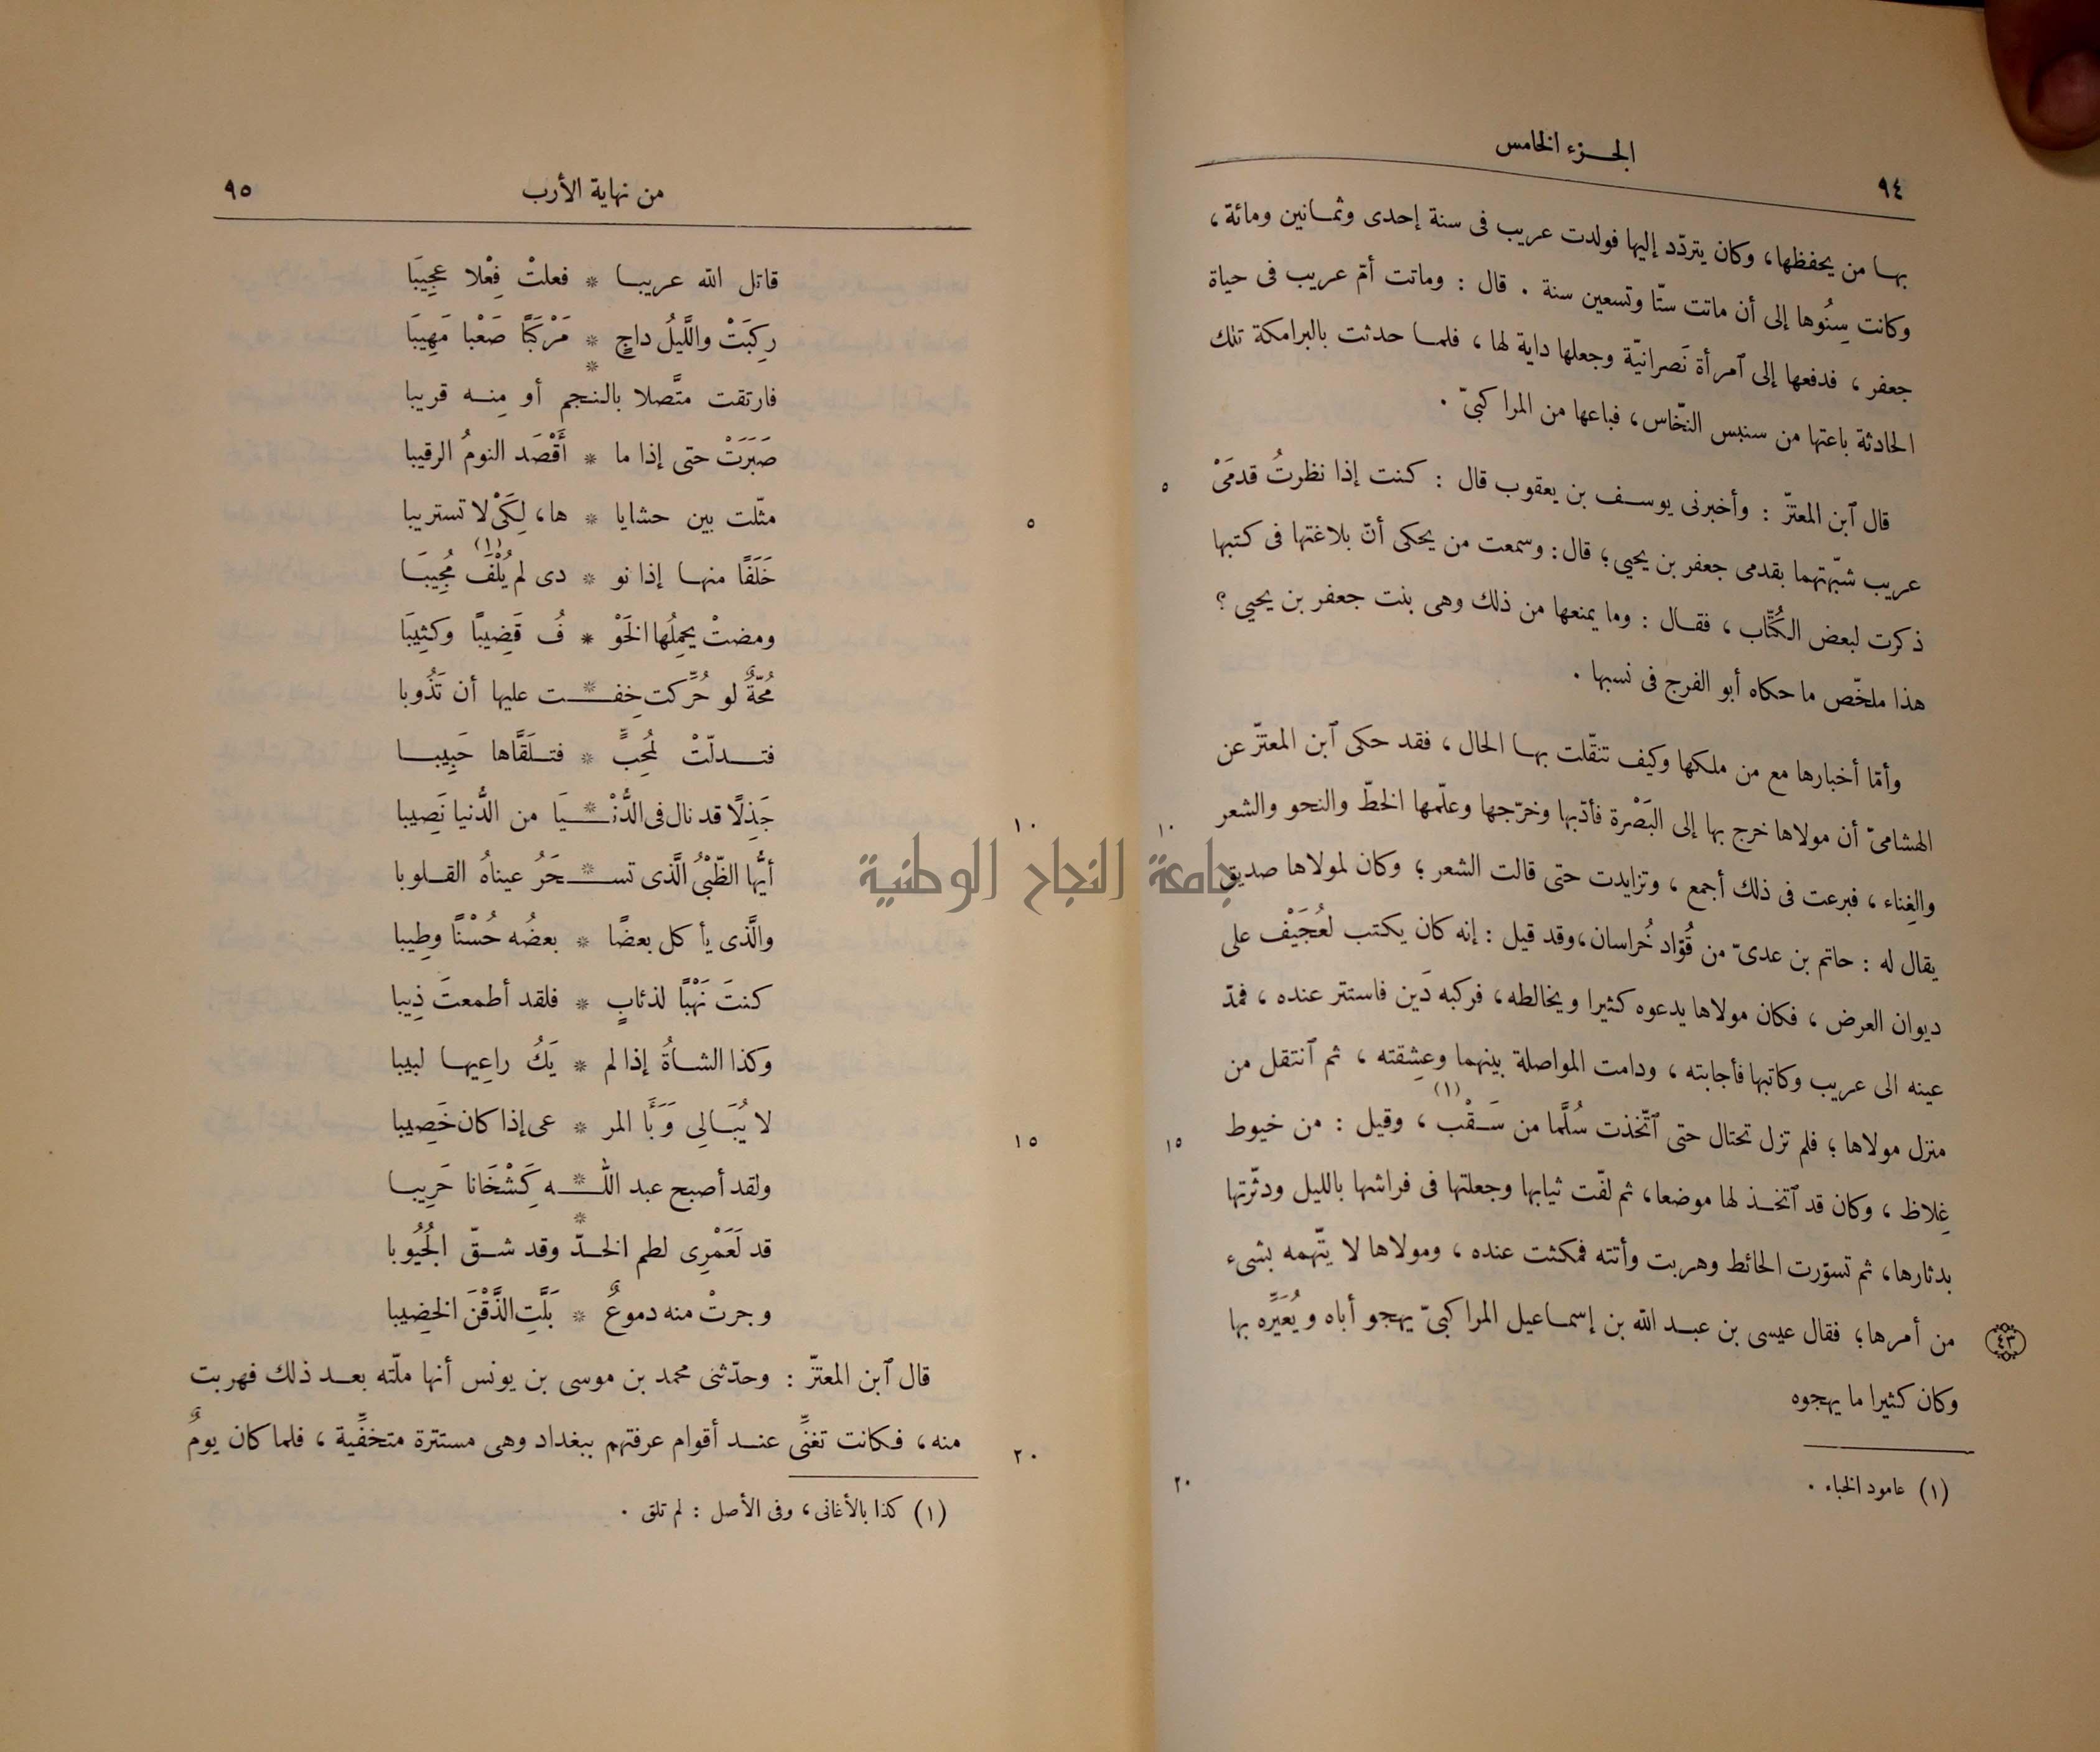 الجزء الخامس
٩٤
بها من يحفظها، وكان يتردّد إليها فولدت عريب فى سنة إحدى وثمانين ومائة،
وكانت سِنُوها إلى أن ماتت ستّا وتسعين سنة . قال : وماتت أمّ عريب فى حياة
جعفر، فدفعها إلى ٱمرأة نَصرانيّة وجعلها داية لها، فلما حدثت بالبرامكة تلك
الحادثة باعتها من سنبس النخّاس، فباعها من المراكبىّ .
قال ٱبن المعتزّ : وأخبرنى يوسف بن يعقوب قال : كنت إذا نظرتُ قدمَىْ
٥
عريب شبّهتهما بقدمى جعفر بن يحيى؛ قال: وسمعت من يحكى أنّ بلاغتها فى كتبها
ذكرت لبعض الكُتّاب، فقال : وما يمنعها من ذلك وهى بنت جعفر بن يحيى ؟
هذا ملخّص ما حكاه أبو الفرج فى نسبها .
وأمّا أخبارها مع من ملكها وكيف تنقّلت بها الحال، فقد حكى ٱبن المعتزّ عن
الهشامىّ أن مولاها خرج بها إلى البَصْرة فأدّبها وخرّجها وعلّمها الخطّ والنحو والشعر
١٠
والغِناء، فبرعت فى ذلك أجمع، وتزايدت حتى قالت الشعر؛ وكان لمولاها صديق
يقال له : حاتم بن عدىّ من قُوّاد خُراسان، وقد قيل : إنه كان يكتب لعُجَيْف على
ديوان العرض، فكان مولاها يدعوه كثيرا ويخالطه، فركبه دَين فاستتر عنده، فمدّ
عينه الى عريب وكاتبها فأجابته، ودامت المواصلة بينهما وعشِقته، ثم ٱنتقل من
منزل مولاها؛ فلم تزل تحتال حتى ٱتّخذت سُلَّما من سَقْب (١)، وقيل : من خيوط
١٥
غِلاظ، وكان قد ٱتخذ لها موضعا، ثم لفّت ثيابها وجعلتها فى فراشها بالليل ودثّرتها
بدثارها، ثم تسوّرت الحائط وهربت وأتته فمكثت عنده، ومولاها لا يتّهمه بشىء
من أمرها؛ فقال عيسى بن عبد الله بن إسماعيل المراكبىّ يهجو أباه ويُعَيِّره بها
٤٣
وكان كثيرا ما يهجوه
(١) عامود الخباء .
٢٠
من نهاية الأرب
٩٥
قاتل الله عريبا * فعلتْ فِعْلا عجِيبَا
رِكبَتْ والَّليلُ داجٍ * مَرْكَبًا صَعْبا مَهِيبَا
فارتقت متَّصلا بالنجم * أو مِنه قريبا
صَبَرَتْ حتى إذا ما * أَقْصَد النومُ الرقيبا
مثّلت بين حشايا * ها، لِكَىْ لا تستريبا
٥
خَلَفًا منها إذا نو * دى لم يُلْفَ (١) مُجِيبَا
ومضتْ يحمِلُها الخَوْ * فُ قَضِيبًا وكثِيبَا
مُحّةٌ لو حُرِّكت خِفـ * ـت عليها أن تَذُوبا
فتدلّتْ لمُحِبٍّ * فتلَقَّاها حَبِيبا
جَذِلًا قد نال فى الدُّنْـ * ـيَا من الدُّنيا نَصِيبا
١٠
أيُّها الظّبْىُ الَّذى تسـ * ـحَرُ عيناهُ القلوبا
والَّذى يأكل بعضًا * بعضُه حُسْنًا وطِيبا
كنتَ نَهْبًا لذئابٍ * فلقد أطمعتَ ذِيبا
وكذا الشاةُ إذا لم * يَكُ راعِيها لبيبا
لا يُبَالِى وَبَأَ المر * عى إذا كان خَصِيبا
١٥
ولقد أصبح عبد اللـ * ـه كَِشْخَانا حَرِيبا
قد لَعَمْرِى لطم الخدّ * وقد شقّ الجُيُوبا
وجرتْ منه دموعٌ * بَلَّتِ الذَّقْنَ الخضِيبا
قال ٱبن المعتزّ : وحدّثنى محمد بن موسى بن يونس أنها ملّته بعد ذلك فهربت
منه، فكانت تغنِّى عند أقوام عرفتهم ببغداد وهى مستترة متخفِّية، فلما كان يومٌ
٢٠
(١) كذا بالأغانى، وفى الأصل : لم تلق .
جامعة النجاح الوطنية